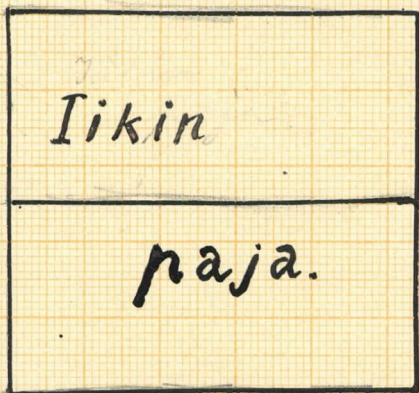 Iikin
paja.